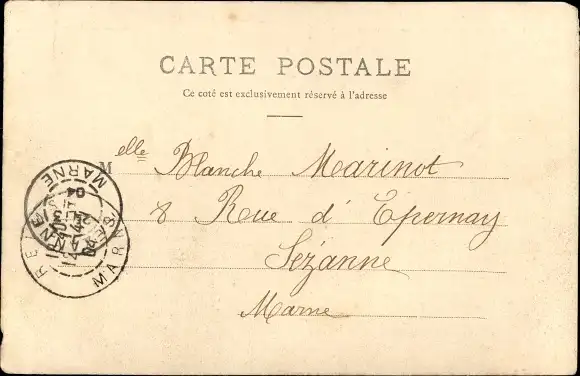 CARTE POSTALE
Ce coté est exclusivement réservé à l'adresse
Melle Blanche Marinot
8 Rue d'Epernay
Sézanne
Marne
MARNE
04
MARNE